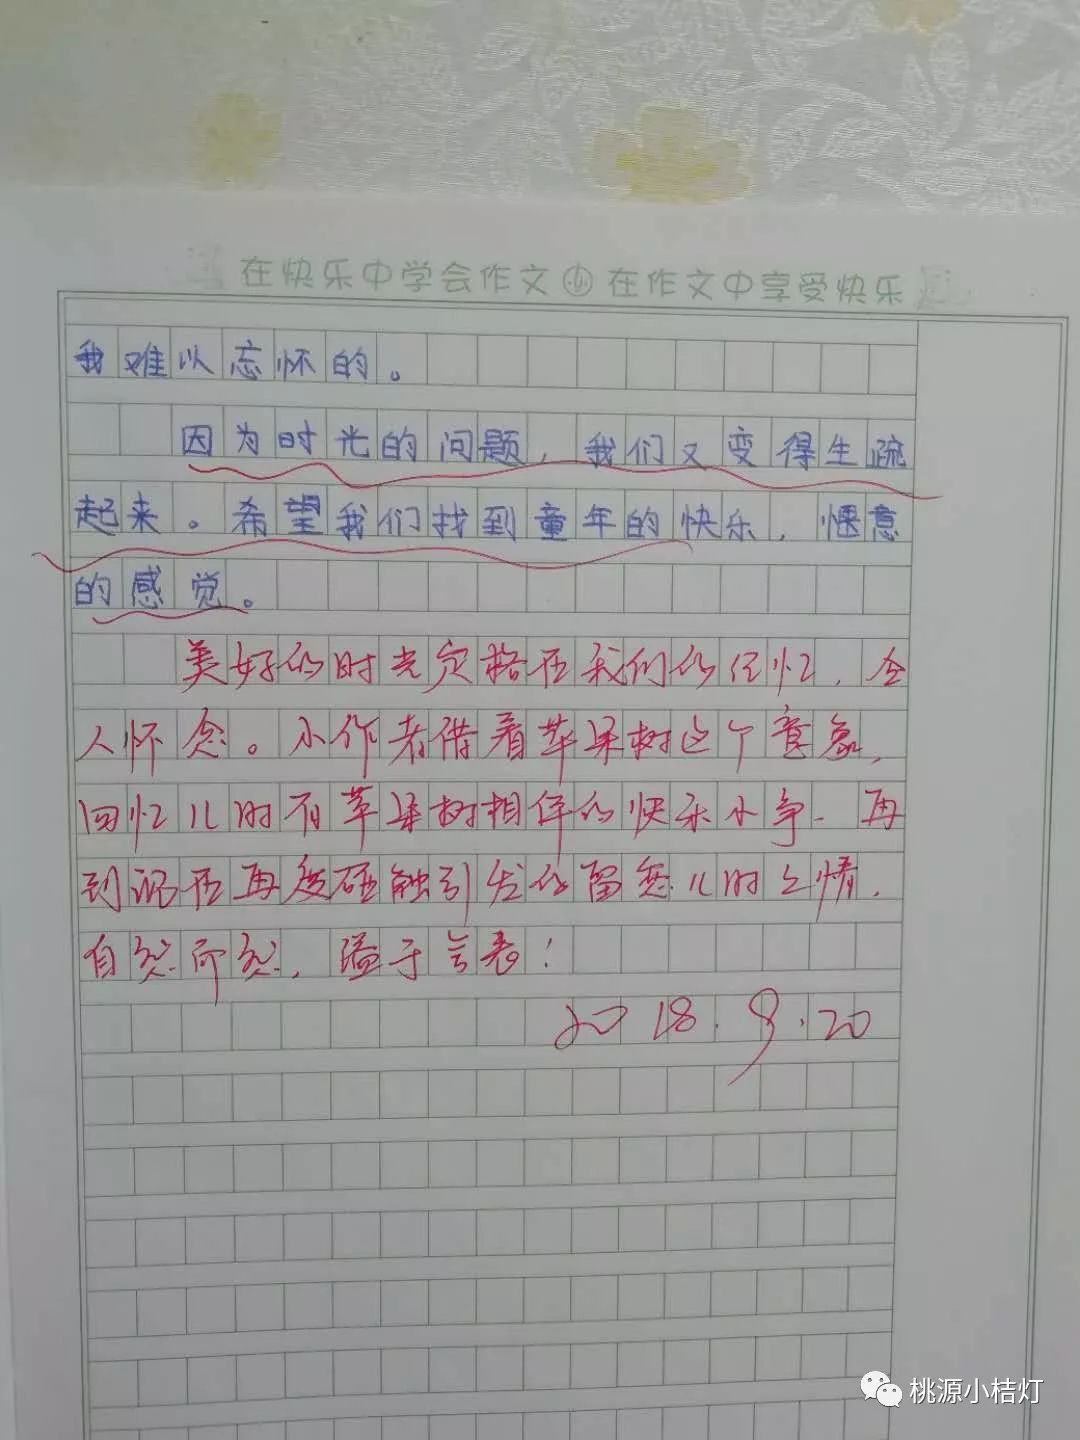 在快乐中学会作文 在作文中享受快乐
我难以忘怀的。
因为时光的问题，我们又变得生疏
起来。希望我们找到童年的快乐，惬意
的感觉。
美好的时光定格在我们的记忆，令
人怀念。小作者借着苹果树这个意象，
回忆儿时有苹果树相伴的快乐小事。再
到现在再度碰触引发的留恋儿时之情，
自然而然，溢于言表！
2018.9.20
桃源小桔灯